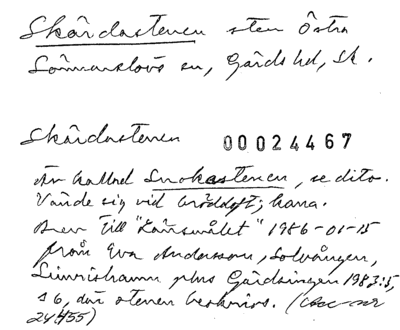 Skårdastenen sten Östra
Sönnarslövs sn, Gärds hd, Sk.
Skårdastenen 00024467
Än kallad Snokastenen, se dito.
Vände sig vid bröddoft; kana.
Brev till "Länsmålet" 1986-01-15
från Eva Andersson, Solvången,
Simrishamn plus Gärdsingen 1983:5,
s 6, där stenen beskrivs. (acc-nr
24455)